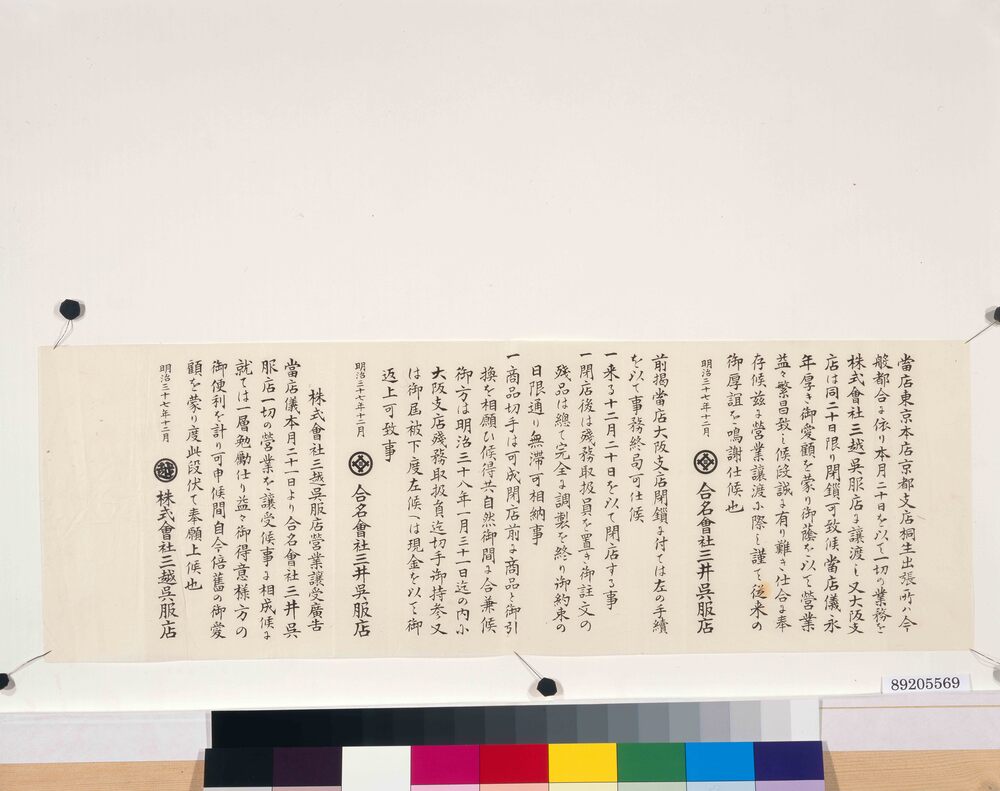 當店東京本店京都支店桐生出張所ハ今
般都合に依り本月二十日を以て一切の業務を
株式會社三越呉服店に譲渡し又大阪支
店は同二十日限り閉鎖可致候當店儀永
年厚き御愛顧を蒙り御蔭を以て營業
益々繁昌致し候段誠に有り難き仕合に奉
存候茲に營業譲渡に際し謹て從来の
御厚誼を鳴謝仕候也
明治三十七年十二月 合名會社三井呉服店
前掲當店大阪支店閉鎖に付ては左の手續
を以て事務終局可仕候
一来る十二月二十日を以て閉店する事
一閉店後は殘務取扱員を置き御註文の
殘品は總て完全に調製を終り御約束の
日限通り無滞可相納事
一商品切手は可成閉店前に商品と御引
換を相願ひ候得共自然御間に合兼候
御方は明治三十八年一月三十一日迄の内に
大阪支店殘務取扱員迄切手御持参又
は御届被下度左候へは現金を以て御
返上可致事
明治三十七年十二月 合名會社三井呉服店
株式會社三越呉服店營業譲受廣告
當店儀本月二十一日より合名會社三井呉
服店一切の營業を譲受候事に相成候に
就ては一層勉勵仕り益々御得意様方の
御便利を計り可申候間自今倍舊の御愛
顧を蒙り度此段伏て奉願上候也
明治三十七年十二月 越 株式會社三越呉服店
89205569